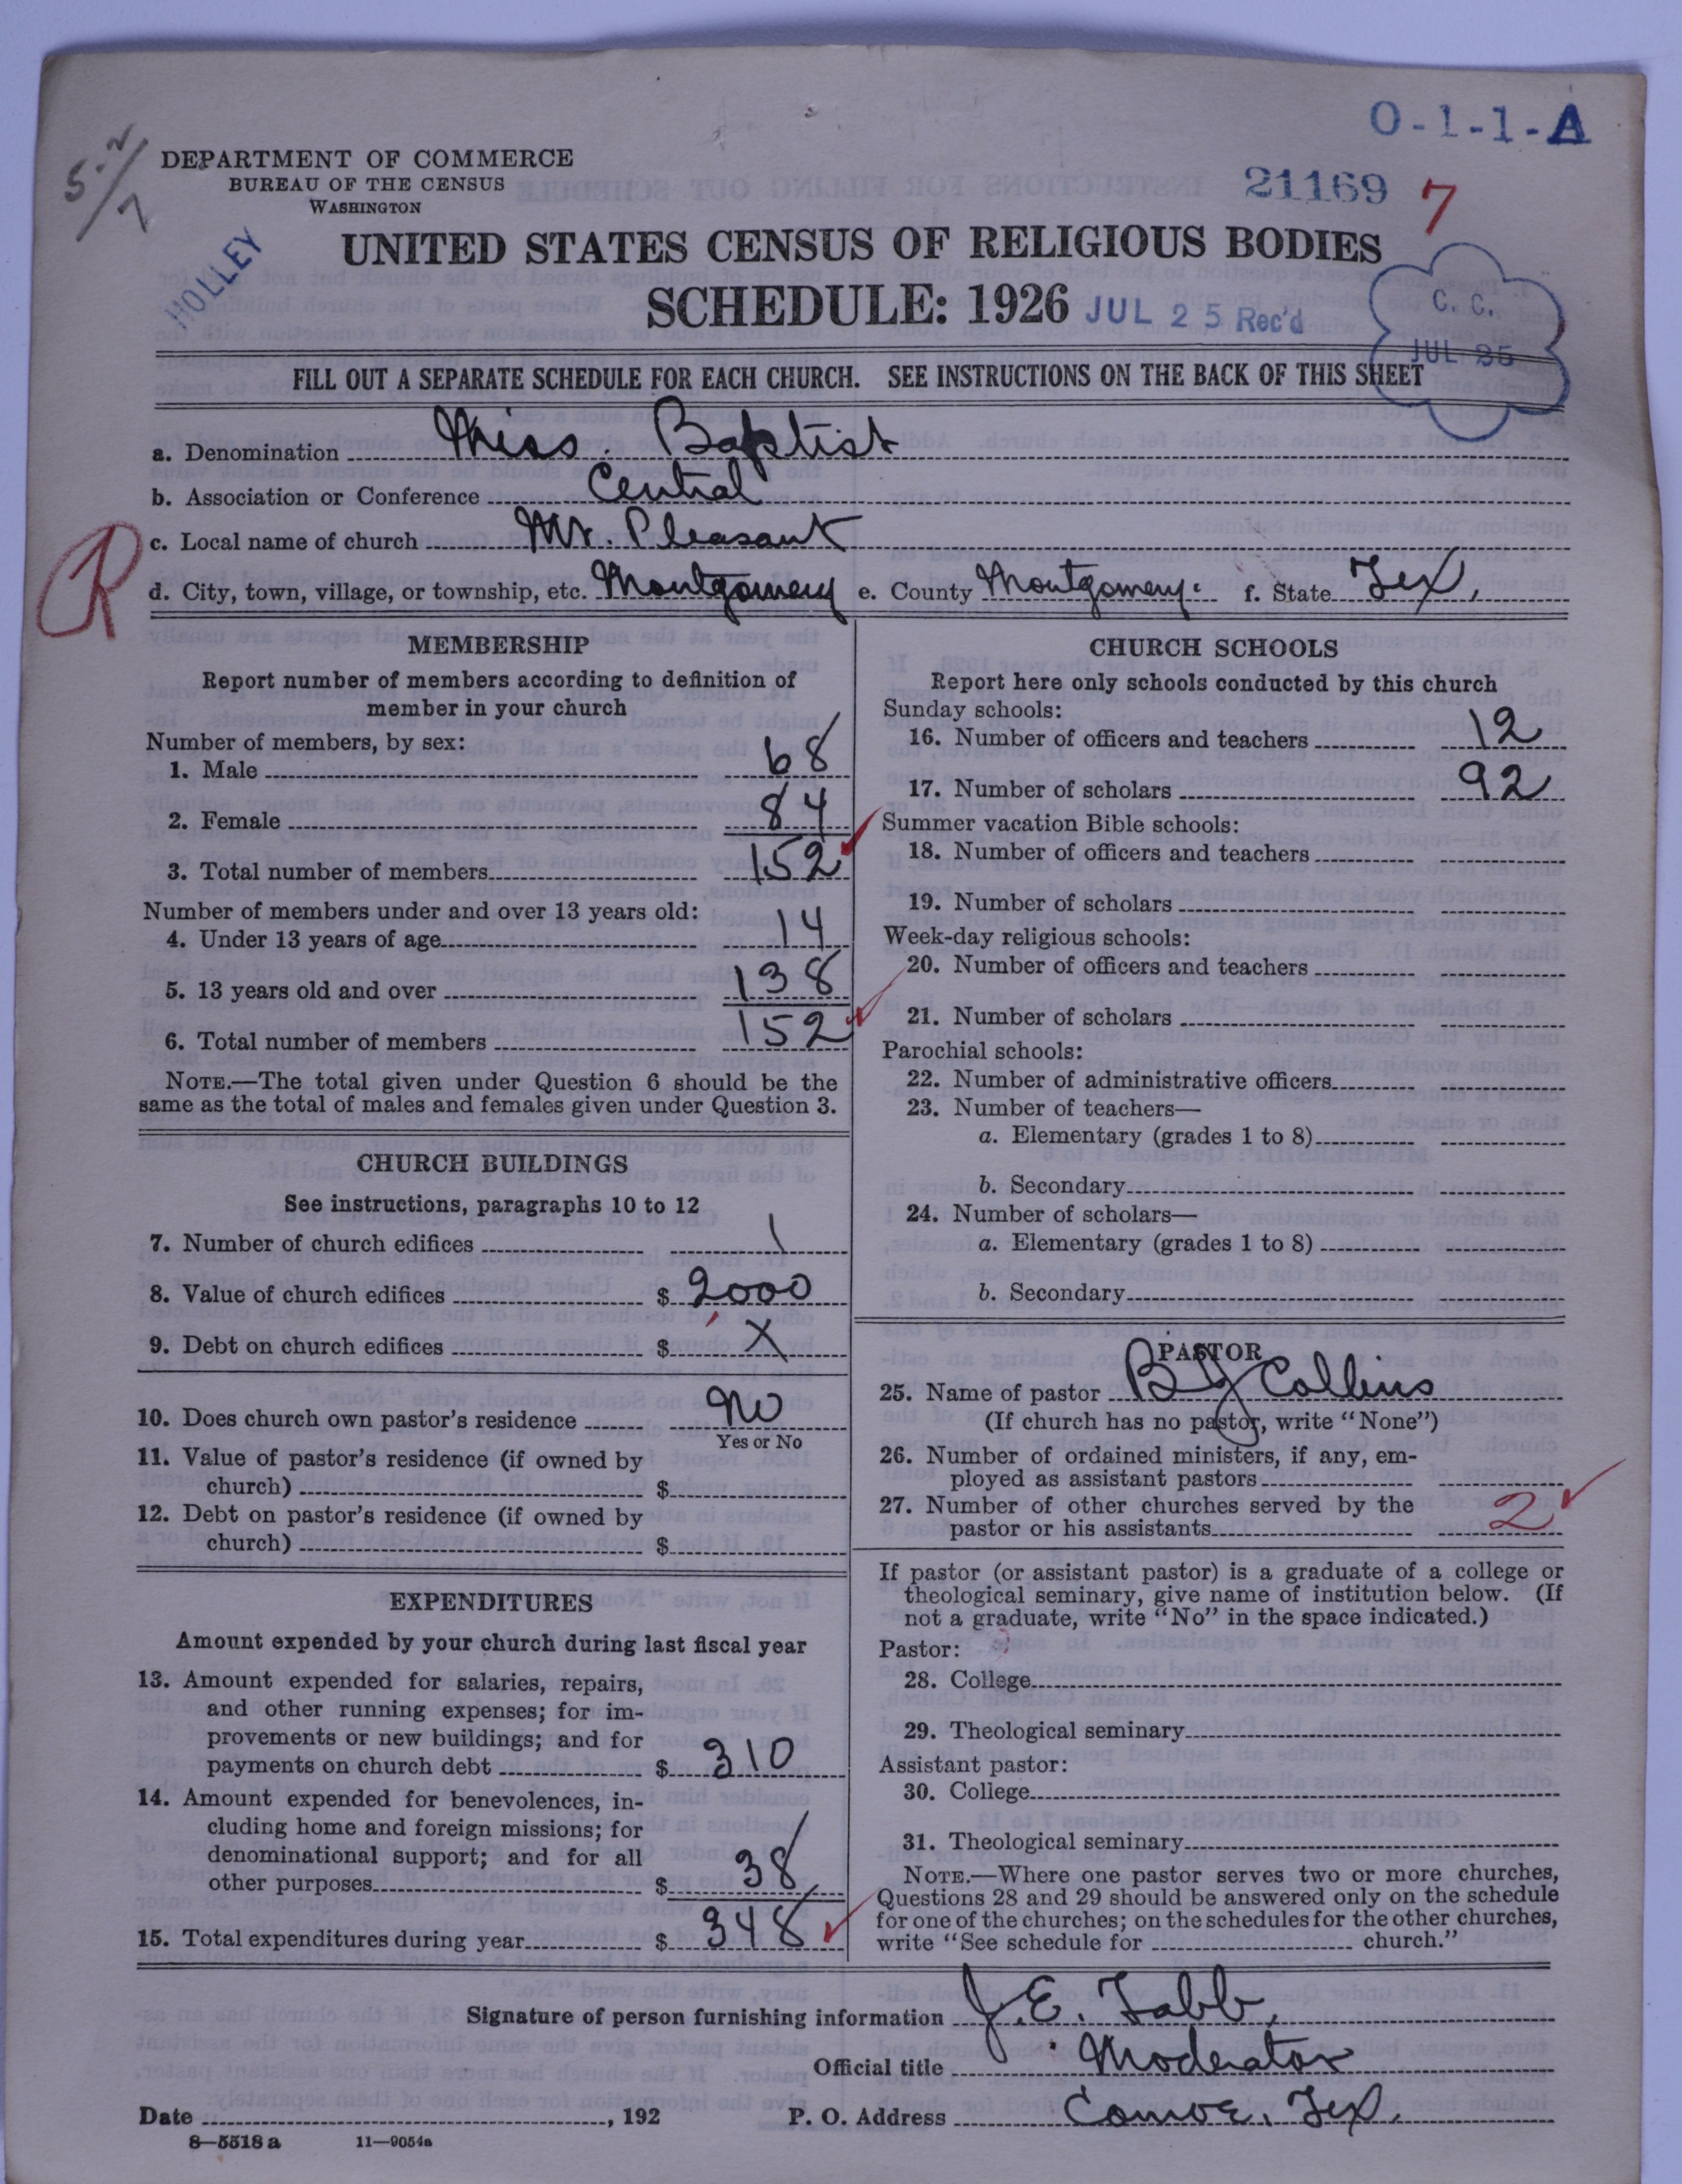 O-1-1-A
5-2/7
DEPARTMENT OF COMMERCE
BUREAU OF THE CENSUS
WASHINGTON
21169 7
HOLLEY
UNITED STATES CENSUS OF RELIGIOUS BODIES
SCHEDULE: 1926 JUL 25 Rec'd
C. C.
JUL 25
FILL OUT A SEPARATE SCHEDULE FOR EACH CHURCH. SEE INSTRUCTIONS ON THE BACK OF THIS SHEET
a. Denomination Miss. Baptist
b. Association or Conference Central
c. Local name of church Mt. Pleasant
R
d. City, town, village, or township, etc. Montgomery e. County Montgomery. f. State Tex.
MEMBERSHIP
Report number of members according to definition of
member in your church
Number of members, by sex:
1. Male 68
2. Female 84
3. Total number of members 152
Number of members under and over 13 years old:
4. Under 13 years of age 14
5. 13 years old and over 138
6. Total number of members 152
NOTE.—The total given under Question 6 should be the
same as the total of males and females given under Question 3.
CHURCH BUILDINGS
See instructions, paragraphs 10 to 12
7. Number of church edifices 1
8. Value of church edifices $ 2000
9. Debt on church edifices $ X
10. Does church own pastor's residence No
Yes or No
11. Value of pastor's residence (if owned by
church) $
12. Debt on pastor's residence (if owned by
church) $
EXPENDITURES
Amount expended by your church during last fiscal year
13. Amount expended for salaries, repairs,
and other running expenses; for im-
provements or new buildings; and for
payments on church debt $ 310
14. Amount expended for benevolences, in-
cluding home and foreign missions; for
denominational support; and for all
other purposes $ 38
15. Total expenditures during year $ 348
CHURCH SCHOOLS
Report here only schools conducted by this church
Sunday schools:
16. Number of officers and teachers 12
17. Number of scholars 92
Summer vacation Bible schools:
18. Number of officers and teachers
19. Number of scholars
Week-day religious schools:
20. Number of officers and teachers
21. Number of scholars
Parochial schools:
22. Number of administrative officers
23. Number of teachers—
a. Elementary (grades 1 to 8)
b. Secondary
24. Number of scholars—
a. Elementary (grades 1 to 8)
b. Secondary
PASTOR
25. Name of pastor Collins
(If church has no pastor, write "None")
26. Number of ordained ministers, if any, em-
ployed as assistant pastors
27. Number of other churches served by the
pastor or his assistants 2
If pastor (or assistant pastor) is a graduate of a college or
theological seminary, give name of institution below. (If
not a graduate, write "No" in the space indicated.)
Pastor:
28. College
29. Theological seminary
Assistant pastor:
30. College
31. Theological seminary
NOTE.—Where one pastor serves two or more churches,
Questions 28 and 29 should be answered only on the schedule
for one of the churches; on the schedules for the other churches,
write "See schedule for church."
Signature of person furnishing information J. E. Tabb,
Official title Moderator
Date , 192 P. O. Address Conroe, Tex.
8—5518 a 11—9054a